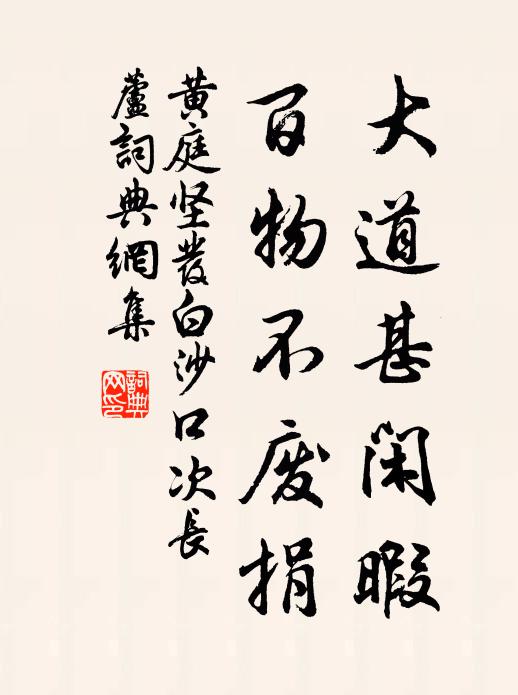 大道甚閑暇
百物不废捐
黄庭坚發白沙口次長
蘆詞典網集
詞典
网印